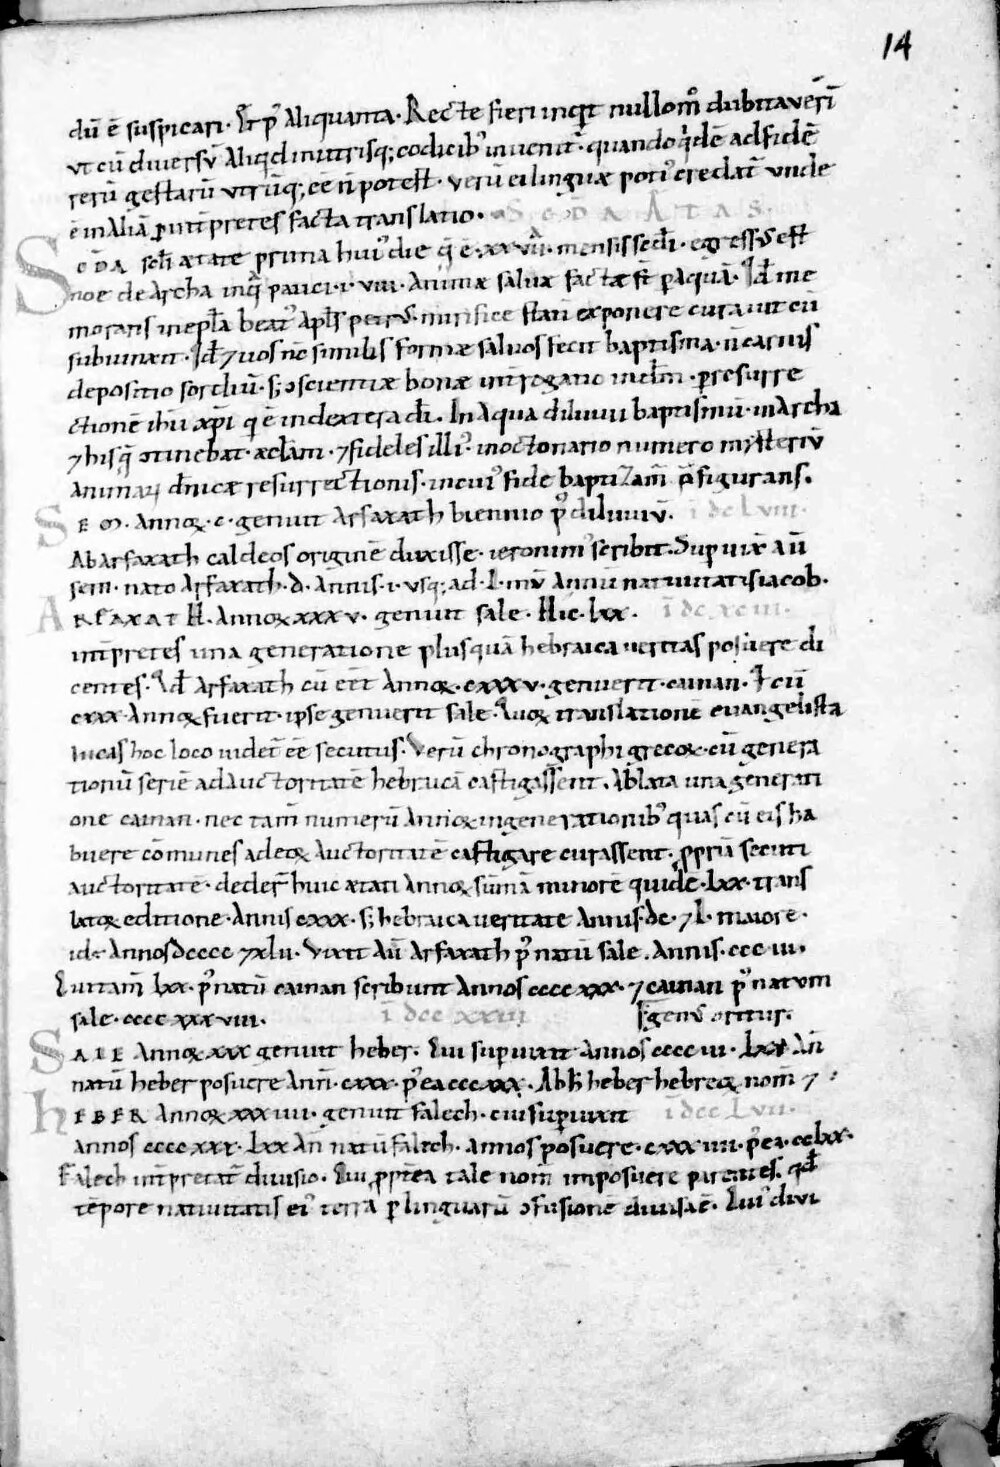 14
dū ē suspicari. Et p᷒ Aliquanta. Recte fieri inquit nullom̊ dubitaverī
ut cū diversū Aliquid in utrisq; codicib᷒ invenit̄. quando q̇dē ad fidē
rerū gestarū utrūq; ēē ñ potest. verū ei linguæ poti᷒ credat̄ unde
ē in Aliā ꝑ int̄pretes facta translatio. SCDA ÆTAS.
SCDA scłi ætate prima hui᷒ diei q̄ ē xxvii. mensis scdi. egressus est
noe de Archa in q̄ pauci .i. viii. Animæ salvæ factæ st̄ ꝑ Aquā. Id me
morans in epła beat᷒ Apłs petrus. mirifice statī exponere curavit cū
subiunxit. Id ⁊ vos nc̄ similis formæ salvos fecit baptisma. ñ carnis
depositio sordiū. s; ɔscientiæ bonæ int̄rogatio in dm̄. ꝑ resurre
ctionē ihū xp̄i qi ē in dextera dī. In Aqua diluvii baptismū. in Archa
⁊ his q̄ ɔtinebat. æcłam. ⁊ fideles illi᷒. in octonario numero mysteriū
Animaꝝ dn̄icæ resurrectionis. in cui᷒ fide baptizam̄ p̄figurans.
SEM. Annoꝝ .c. genuit Arfaxath biennio p᷒ diluviū. ī dc Lviii.
Ab Arfaxath caldeos originē duxisse. ieronim᷒ scribit. Supvix̄ aū
sem. nato Arfaxath .D. Annis .i. usq; ad .L.mū Annū nativitatis iacob.
ARFAXATH. Annoꝝ xxxv. genuit sale. Hic .Lxx. ī dc xciii.
int̄pretes una generatione plus quā hebraica veritas posuere di
centes. Qd Arfaxath cū eēt Annoꝝ .cxxxv. genuerit .cainan. Et cū
cxxx. Annoꝝ fuerit. ipse genuerit sale. Quoꝝ translationē evangelista
lucas hoc loco videt̄ ēē secutus. Verū chronographi grecoꝝ. cū genera
tionū seriē ad Auctoritatē hebraicā castigassent. Ablata una generati
one cainan. nec tam̄ numerū Annoꝝ in generationib᷒ quas cū eis ha
buere cōmunes ad eoꝝ Auctoritatē castigare curassent. ꝓpriā secuti
auctoritatē. deder̄ huic ætati Annoꝝ sūmā minorē quidē .Lxx. trans
latoꝝ editione. Annis cxxx. s; hebraica veritate Annis .dc. ⁊ L. maiorē.
id ē Annos dcccc ⁊ xlii. Vixit Aū Arfaxath p᷒ natū sale. Annis .ccc iii.
Qui tam̄ Lxx. p᷒ natū cainan scribunt Annos cccc xxx. ⁊ cainan p᷒ natum
sale. cccc xxx viii. ī dcc xxiii gen᷒ oritur.
SALE Annoꝝ xxx genuit heber. Qui supvixit Annos cccc iii. Lxx An̄
natū heber posuere Ann̄. cxxx. p᷒ ea ccc xxx. Ab heber hebreoꝝ nom̄ ⁊
HEBER Annoꝝ xxx iiii. genuit falech. cui supvixit ī dcc Lvii.
Annos cccc xxx. Lxx An̄ natū falech. Annos posuere. cxxx iiii. p᷒ ea. cc Lxx.
Falech int̄pretat̄ divisio. Cui ꝓpt̄ea tale nom̄ imposuere parentes. qd
tēpore nativitatis ei᷒ terra ꝑ linguarū ɔfusionē divisa ē. Cui᷒ divi